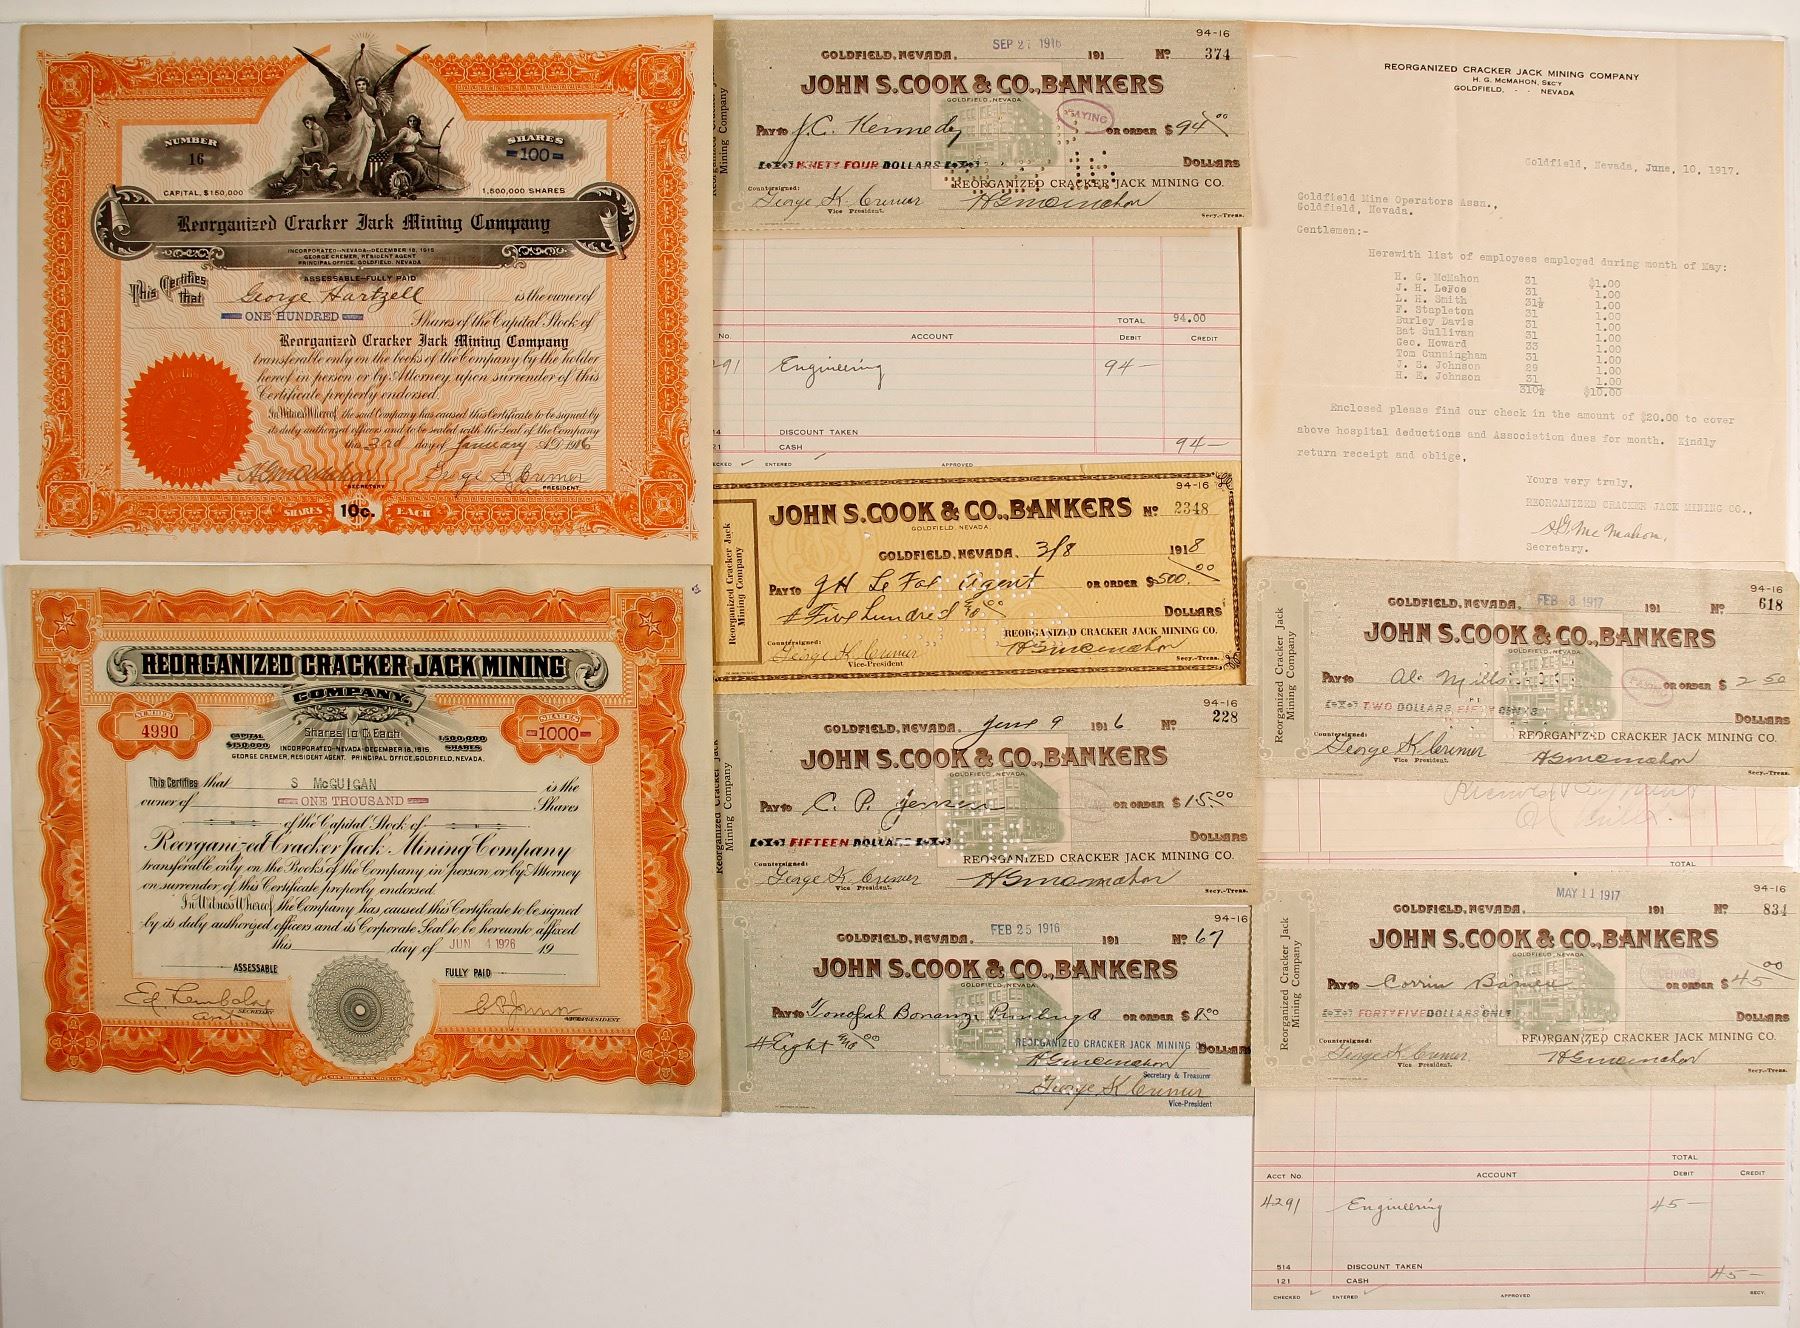 NUMBER
16
SHARES
100
CAPITAL, $150,000
1,500,000 SHARES
Reorganized Cracker Jack Mining Company
INCORPORATED--NEVADA--DECEMBER 18, 1915
GEORGE CREMER, RESIDENT AGENT
PRINCIPAL OFFICE, GOLDFIELD, NEVADA
ASSESSABLE--FULLY PAID
This Certifies that George Hartzell is the owner of
ONE HUNDRED Shares of the Capital Stock of
Reorganized Cracker Jack Mining Company
transferable only on the books of the Company by the holder
hereof in person or by Attorney upon surrender of this
Certificate properly endorsed.
In Witness Whereof, the said Company has caused this Certificate to be signed by
its duly authorized officers and to be sealed with the Seal of the Company
this 3rd day of January A.D. 1916
HG McMahon
SECRETARY
George K Cremer
PRESIDENT
SHARES 10c. EACH
REORGANIZED CRACKER JACK MINING
COMPANY
NUMBER
4990
SHARES
1000
Shares 10 ¢ Each
CAPITAL
$150,000
1,500,000
SHARES
INCORPORATED-NEVADA-DECEMBER 18, 1915.
GEORGE CREMER, RESIDENT AGENT. PRINCIPAL OFFICE, GOLDFIELD, NEVADA.
This Certifies that S McGUIGAN is the
owner of ONE THOUSAND Shares
of the Capital Stock of
Reorganized Cracker Jack Mining Company
transferable only on the Books of the Company in person or by Attorney
on surrender of this Certificate properly endorsed.
In Witness Whereof, the Company has caused this Certificate to be signed
by its duly authorized officers and its Corporate Seal to be hereunto affixed
this day of JUN 4 1926 19
ASSESSABLE
FULLY PAID
SECRETARY
VICE PRESIDENT
94-16
GOLDFIELD, NEVADA, SEP 27 1916 191 No 374
JOHN S. COOK & CO., BANKERS
GOLDFIELD, NEVADA
Pay to J.C. Kennedy OR ORDER $ 94 00
NINETY FOUR DOLLARS DOLLARS
Reorganized Cracker Jack
Mining Company
Countersigned:
REORGANIZED CRACKER JACK MINING CO.
George K. Cremer
Vice President.
HG McMahon
Secy.-Treas.
TOTAL 94.00
No. ACCOUNT DEBIT CREDIT
Engineering 94 —
DISCOUNT TAKEN
CASH 94 —
ENTERED APPROVED
94-16
JOHN S. COOK & CO., BANKERS No 2348
GOLDFIELD, NEVADA.
GOLDFIELD, NEVADA, 3/8 1918
Pay to J H Le Foe Agent OR ORDER $ 500. 00
Five hundred DOLLARS
Reorganized Cracker Jack
Mining Company
REORGANIZED CRACKER JACK MINING CO.
Countersigned:
George K. Cremer
Vice-President
HG McMahon
Secy.-Treas.
94-16
GOLDFIELD, NEVADA, June 9 1916 No 228
JOHN S. COOK & CO., BANKERS
GOLDFIELD, NEVADA.
Pay to C. P. Jensen OR ORDER $ 15.00
FIFTEEN DOLLARS DOLLARS
Reorganized Cracker Jack
Mining Company
Countersigned:
REORGANIZED CRACKER JACK MINING CO.
George K. Cremer
Vice President.
HG McMahon
Secy.-Treas.
94-16
GOLDFIELD, NEVADA, FEB 25 1916 191 No 67
JOHN S. COOK & CO., BANKERS
GOLDFIELD, NEVADA.
Pay to Tonopah Bonanza OR ORDER $ 8.00
Eight DOLLARS
REORGANIZED CRACKER JACK MINING
HG McMahon
Secretary & Treasurer
George K Cremer
Vice-President
REORGANIZED CRACKER JACK MINING COMPANY
H. G. McMAHON, SEC'Y
GOLDFIELD, - - NEVADA
Goldfield, Nevada, June, 10, 1917.
Goldfield Mine Operators Assn.,
Goldfield, Nevada.
Gentlemen:-
Herewith list of employees employed during month of May:
H. G. McMahon 31 $1.00
J. H. LeFoe 31 1.00
L. H. Smith 31½ 1.00
F. Stapleton 31 1.00
Burley Davis 31 1.00
Bat Sullivan 31 1.00
Geo. Howard 33 1.00
Tom Cunningham 31 1.00
J. S. Johnson 29 1.00
H. E. Johnson 31 1.00
310½ $10.00
Enclosed please find our check in the amount of $20.00 to cover
above hospital deductions and Association dues for month. Kindly
return receipt and oblige,
Yours very truly,
REORGANIZED CRACKER JACK MINING CO.,
HG McMahon,
Secretary.
94-16
GOLDFIELD, NEVADA, FEB 3 1917 191 No 618
JOHN S. COOK & CO., BANKERS
GOLDFIELD, NEVADA.
Pay to Al. Mills OR ORDER $ 2 50
TWO DOLLARS FIFTY CENTS DOLLARS
Reorganized Cracker Jack
Mining Company
Countersigned:
REORGANIZED CRACKER JACK MINING CO.
George K. Cremer
Vice President.
HG McMahon
Secy.-Treas.
TOTAL
94-16
GOLDFIELD, NEVADA, MAY 11 1917 191 No 834
JOHN S. COOK & CO., BANKERS
GOLDFIELD, NEVADA.
Pay to Corrin Barnes OR ORDER $ 45 00
FORTY FIVE DOLLARS ONLY DOLLARS
Reorganized Cracker Jack
Mining Company
Countersigned:
REORGANIZED CRACKER JACK MINING CO.
George K. Cremer
Vice President.
HG McMahon
Secy.-Treas.
TOTAL
ACCT No. ACCOUNT DEBIT CREDIT
4291 Engineering 45 —
514 DISCOUNT TAKEN
121 CASH 45 —
CHECKED ENTERED APPROVED SECY.